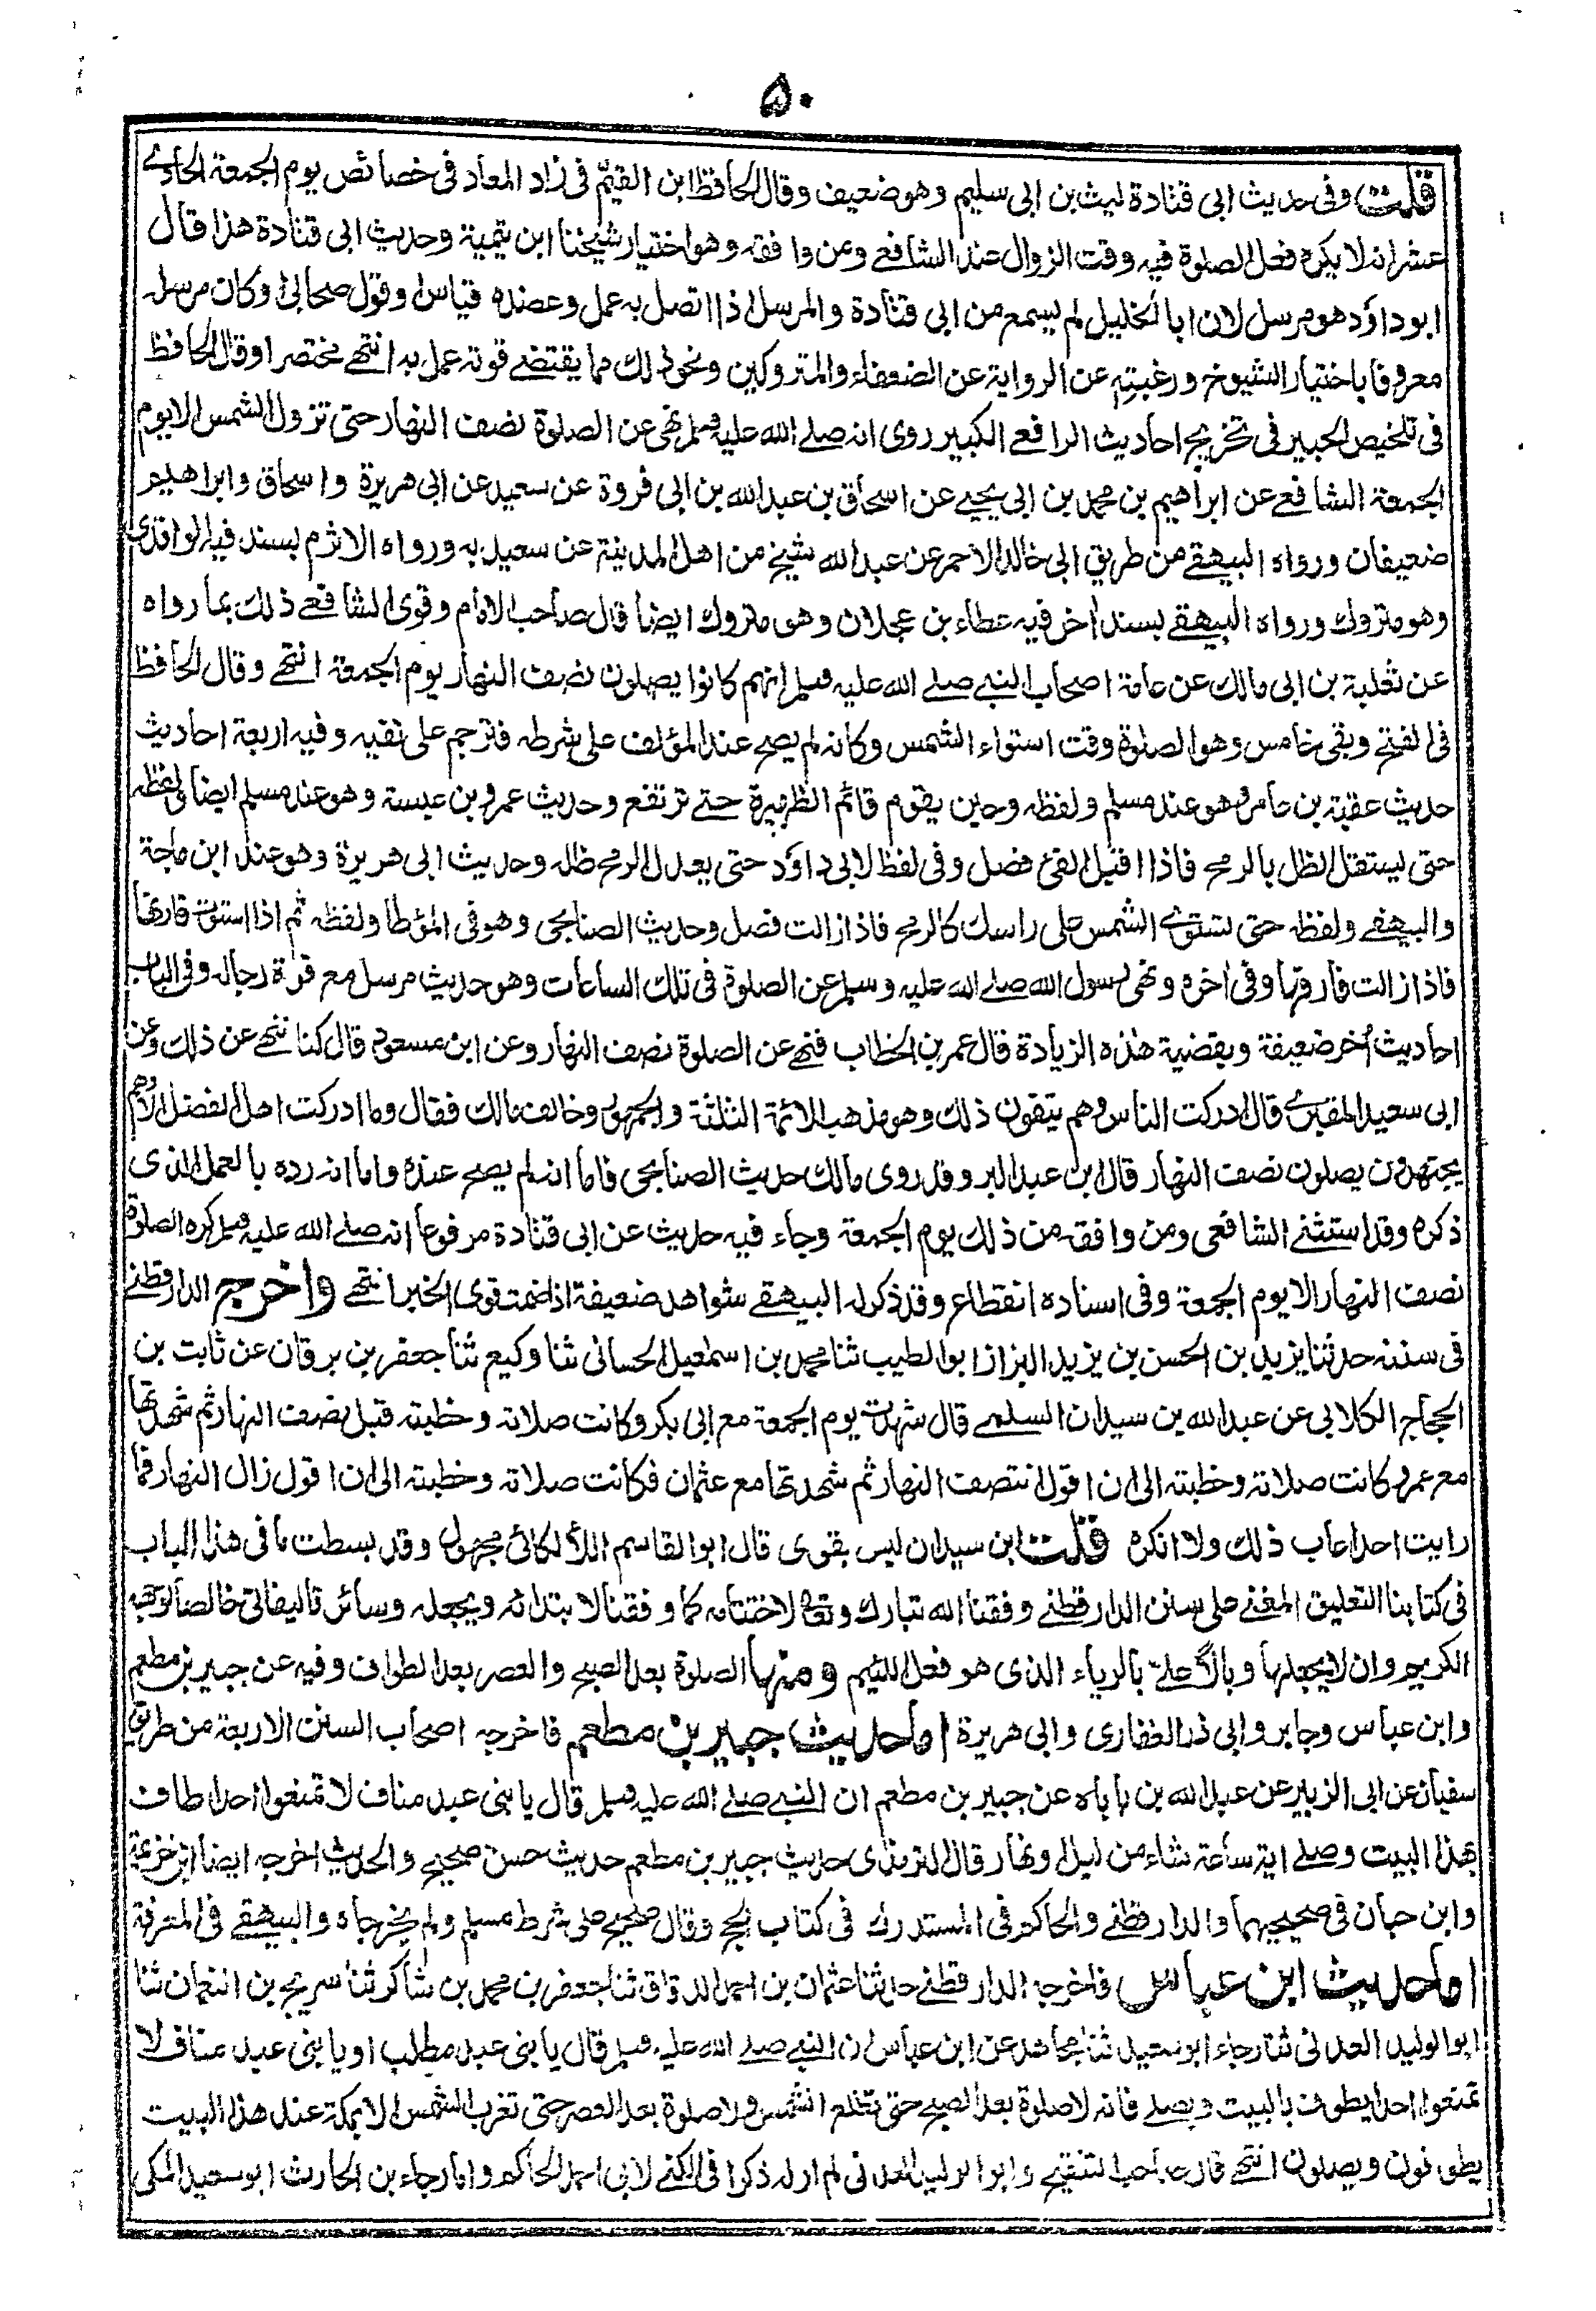 ۵۰
قلت وفى حديث ابى قتادة ليث بن ابى سليم وهو ضعيف وقال الحافظ ابن القيّم فى زاد المعاد فى خصائص يوم الجمعة الحادے
عشر انه لا يكره فعل الصلوة فيه وقت الزوال عند الشافعے ومن وافقه وهو اختيار شيخنا ابن تيمية وحديث ابى قتادة هذا قال
ابو داؤد هو مرسل لان ابا الخليل لم يسمع من ابى قتادة والمرسل اذا اتصل به عمل وعضده قياس او قول صحابى او كان مرسله
معروفا باختيار الشيوخ ورغبته عن الرواية عن الضعفاء والمتروكين ونحو ذلك مما يقتضے قوته عمل به انتهے مختصرا وقال الحافظ
فى تلخيص الحبير فى تخريج احاديث الرافعے الكبير روى انه صلے الله عليه وسلم نهى عن الصلوة نصف النهار حتى تزول الشمس الا يوم
الجمعة الشافعے عن ابراهيم بن محمد بن ابى يحيے عن اسحاق بن عبد الله بن ابى فروة عن سعيد عن ابى هريرة واسحاق وابراهيم
ضعيفان ورواه البيهقے من طريق ابى خالد الاحمر عن عبد الله شيخ من اهل المدينة عن سعيد به ورواه الاثرم بسند فيه الواقدى
وهو متروك ورواه البيهقے بسند اخر فيه عطاء بن عجلان وهو متروك ايضا قال صاحب الامام وقوى الشافعے ذلك بما رواه
عن ثعلبة بن ابى مالك عن عامة اصحاب النبے صلے الله عليه وسلم انهم كانوا يصلون نصف النهار يوم الجمعة انتهے وقال الحافظ
فى الفتح وبقى خامس وهو الصلوة وقت استواء الشمس وكانه لم يصح عند المؤلف على شرطه فترجم على نفيه وفيه اربعة احاديث
حديث عقبة بن عامر وهو عند مسلم ولفظه وحين يقوم قائم الظهيرة حتے ترتفع وحديث عمرو بن عبسة وهو عند مسلم ايضا ولفظه
حتى يستقل الظل بالرمح فاذا اقبل الفئ فصل وفى لفظ لابى داؤد حتى يعدل الرمح ظله وحديث ابى هريرة وهو عند ابن ماجة
والبيهقے ولفظه حتى تستوے الشمس على راسك كالرمح فاذا زالت فصل وحديث الصنابحى وهو فى المؤطا ولفظه ثم اذا استوت قارنها
فاذا زالت فارقها وفى اخره ونهى رسول الله صلے الله عليه وسلم عن الصلوة فى تلك الساعات وهو حديث مرسل مع قوة رجاله وفى الباب
احاديث اُخر ضعيفة وبقضية هذه الزيادة قال عمر بن الخطاب فنهے عن الصلوة نصف النهار وعن ابن مسعود قال كنا ننهے عن ذلك وعن
ابى سعيد المقبرے قال ادركت الناس وهم يتقون ذلك وهو مذهب الائمة الثلثة والجمهور وخالف مالك فقال وما ادركت اهل الفضل الا وهم
يجتهدون يصلون نصف النهار قال ابن عبد البر وقد روى مالك حديث الصنابحى فاما انه لم يصح عنده واما انه رده بالعمل الذى
ذكره وقد استثنے الشافعى ومن وافقه من ذلك يوم الجمعة وجاء فيه حديث عن ابى قتادة مرفوعا انه صلے الله عليه وسلم كره الصلوة
نصف النهار الا يوم الجمعة وفى اسناده انقطاع وقد ذكر له البيهقے شواهد ضعيفة اذا ضمت قوى الخبر انتهے واخرج الدارقطنے
فى سننه حدثنا يزيد بن الحسن بن يزيد البزاز ابو الطيب ثنا محمد بن اسمٰعيل الحسانى ثنا وكيع ثنا جعفر بن برقان عن ثابت بن
الحجاج الكلابى عن عبد الله بن سيدان السلمے قال شهدت يوم الجمعة مع ابى بكر وكانت صلاته وخطبته قبل نصف النهار ثم شهدتها
مع عمر وكانت صلاته وخطبته الى ان اقول انتصف النهار ثم شهدتها مع عثمان فكانت صلاته وخطبته الى ان اقول زال النهار فما
رايت احدا عاب ذلك ولا انكره قلت ابن سيدان ليس بقوى قال ابو القاسم اللألكائى مجهول وقد بسطت ما فى هذا الباب
فى كتابنا التعليق المغنے على سنن الدارقطنے وفقنا الله تبارك وتعالى لاختتامه كما وفقنا لابتدائه ويجعله وسائر تاليفاتى خالصا لوجهه
الكريم وان لا يجعلها وبالا علىّ بالرياء الذى هو فعل اللئيم ومنها الصلوة بعد الصبح والعصر بعد الطواف وفيه عن جبير بن مطعم
وابن عباس وجابر وابى ذر الغفارى وابى هريرة اما حديث جبير بن مطعم فاخرجه اصحاب السنن الاربعة من طريق
سفيان عن ابى الزبير عن عبد الله بن باباه عن جبير بن مطعم ان النبے صلے الله عليه وسلم قال يا بنى عبد مناف لا تمنعوا احدا طاف
بهذا البيت وصلے اية ساعة شاء من ليل او نهار قال الترمذى حديث جبير بن مطعم حديث حسن صحيح والحديث اخرجه ايضا ابن خزيمة
وابن حبان فى صحيحيهما والدارقطنے والحاكم فى المستدرك فى كتاب الحج وقال صحيح على شرط مسلم ولم يخرجاه والبيهقے فى المعرفة
اما حديث ابن عباس فاخرجه الدارقطنے حدثنا عثمان بن احمد الدقاق ثنا جعفر بن محمد بن شاكر ثنا سريج بن النعمان ثنا
ابو الوليد العدنى ثنا رجاء ابو سعيد ثنا مجاهد عن ابن عباس ان النبے صلے الله عليه وسلم قال يا بنى عبد مطلب او يا بنى عبد مناف لا
تمنعوا احدا يطوف بالبيت ويصلے فانه لا صلوة بعد الصبح حتى تطلع الشمس ولا صلوة بعد العصر حتى تغرب الشمس الا بمكة عند هذا البيت
يطوفون ويصلون انتهے قال صاحب التنقيح وابو الوليد العدنى لم ار له ذكرا فى الكنے لابى احمد الحاكم واما رجاء بن الحارث ابو سعيد المكى